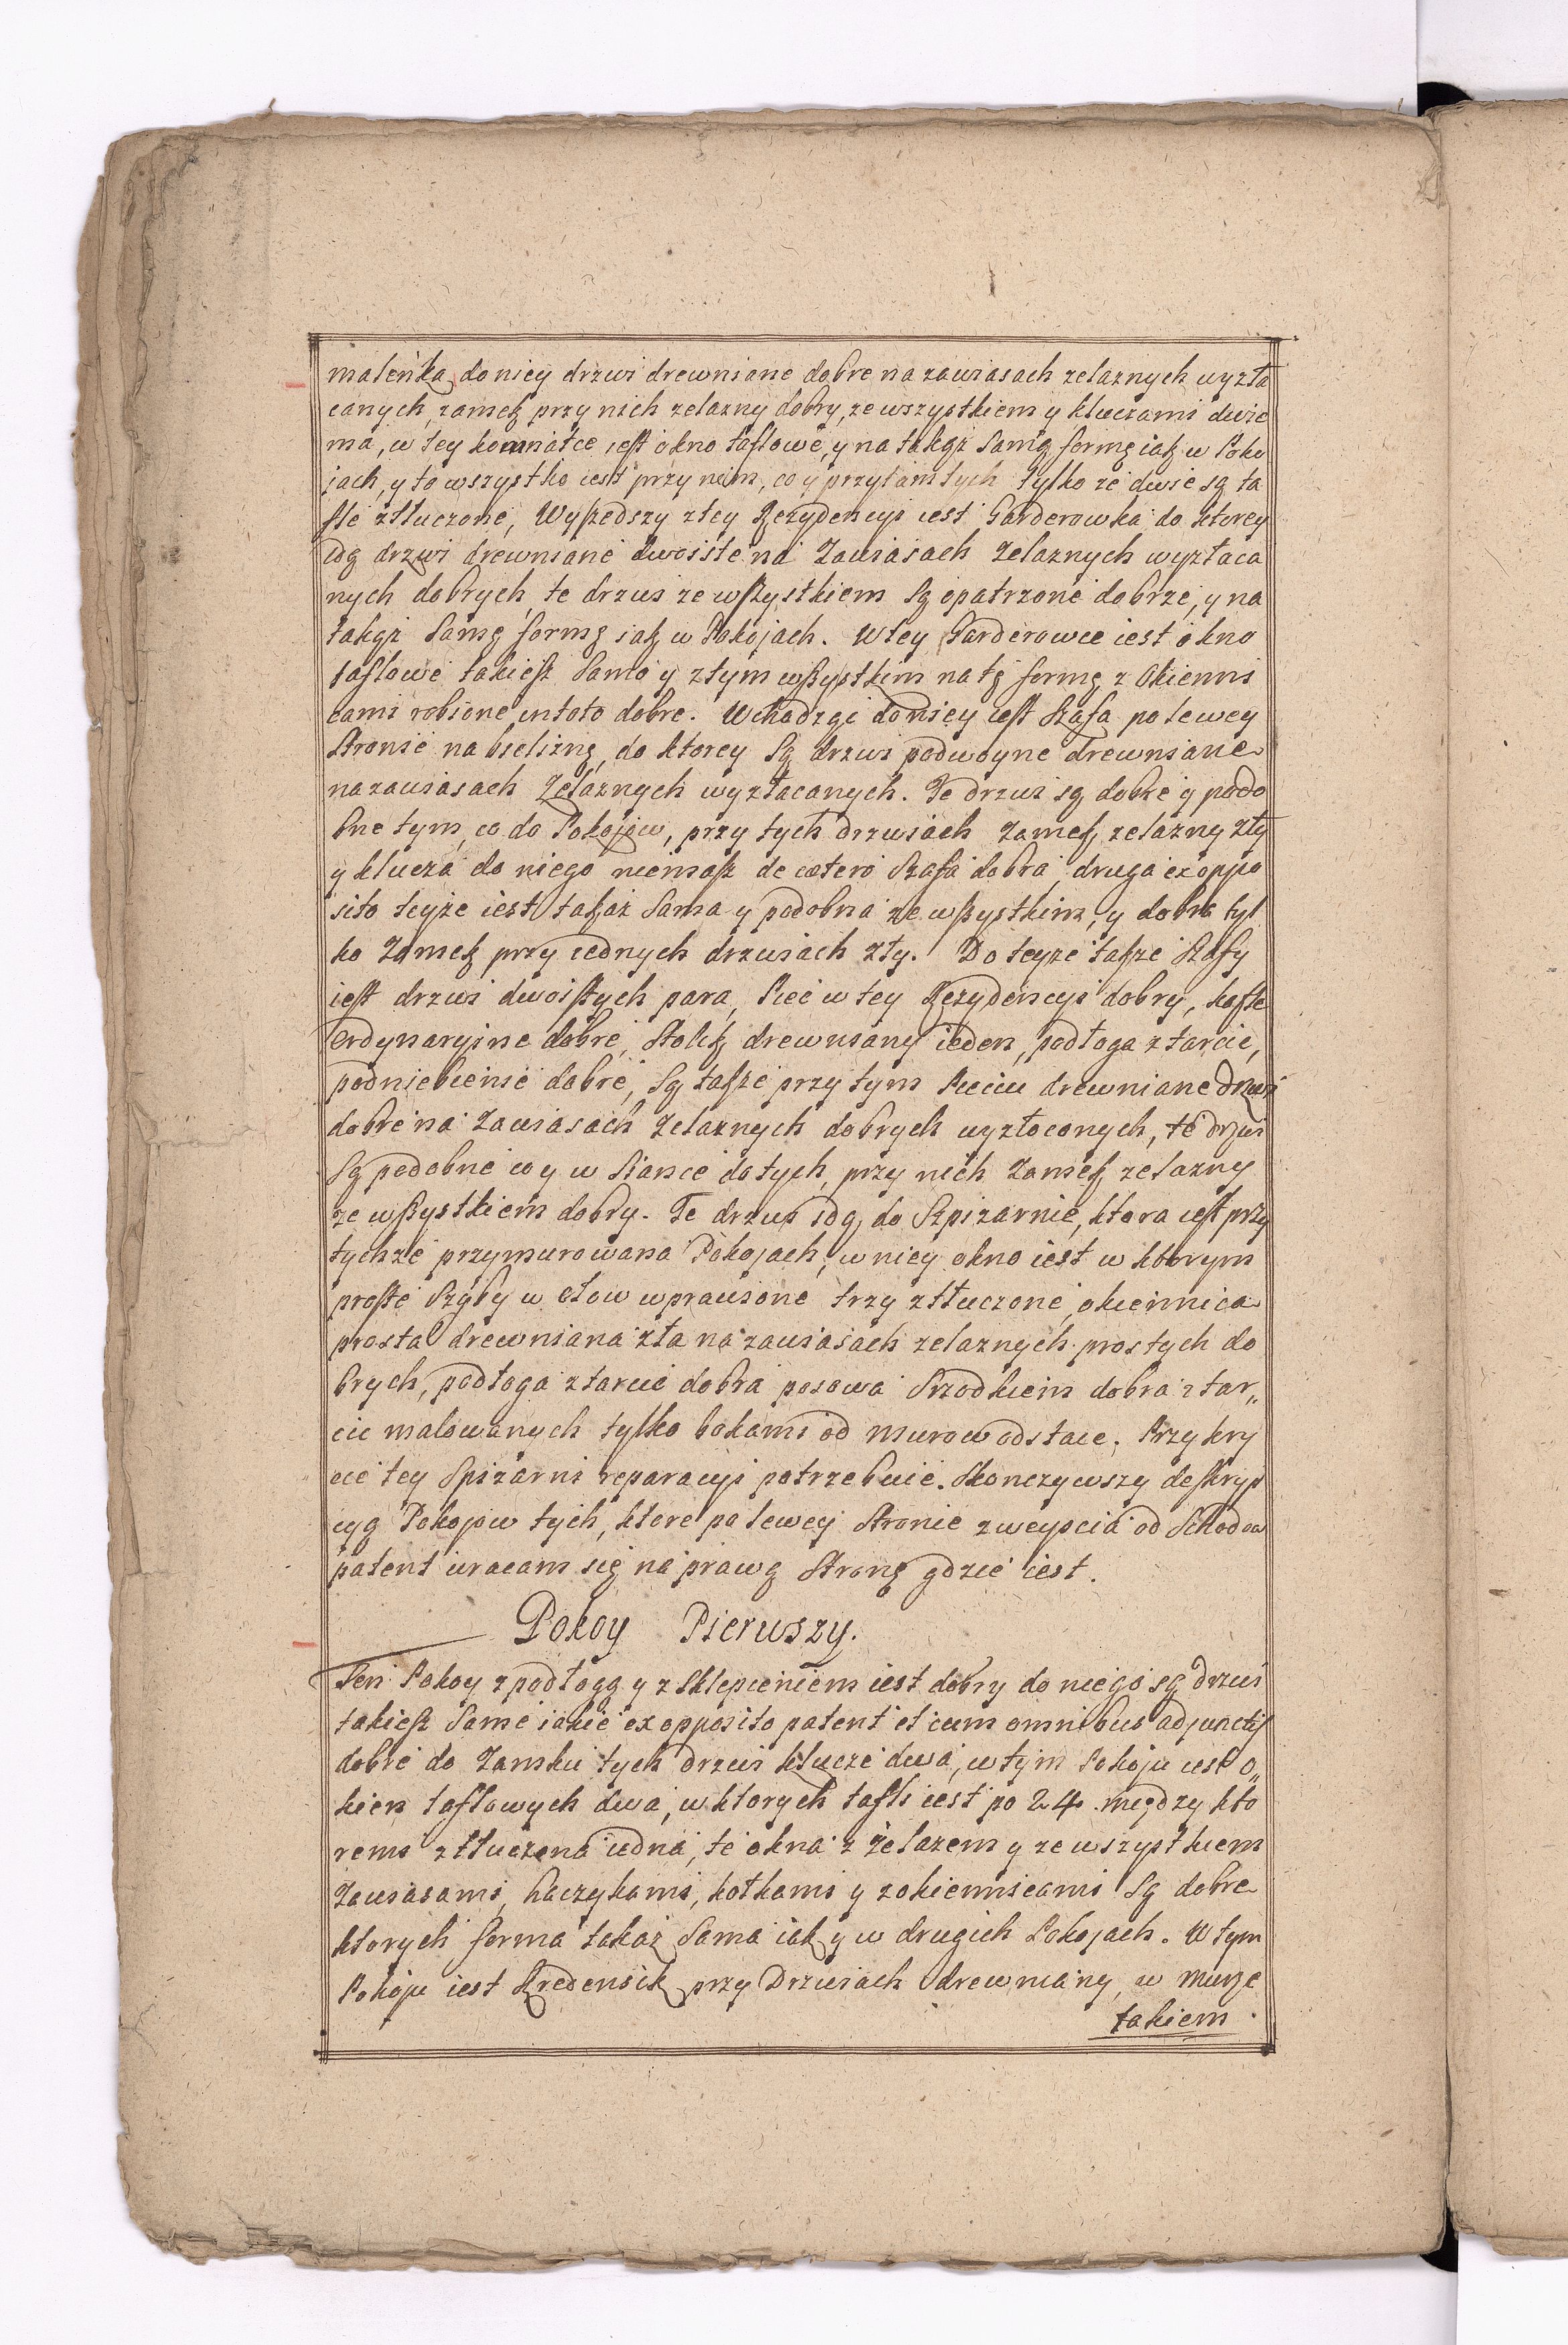 maleńka, do niey drzwi drewniane dobre na zawiasach zelaznych wyzła
canych, zamek przy nich zelazny dobry, ze wszystkiem y kluczami dwie
ma, w tey komnatce iest okno taflowe, y na takąż samą formę iak w Poko
jach, y to wszystko iest przy nim, co y przy tamtych tylko że dwie są ta
fle ztłuczone, Wyszedszy z tey Rezydencyi iest Garderowka do ktorey
idą drzwi drewniane dwoiste na Zawiasach Zelaznych wyzłaca
nych dobrych, te drzwi ze wszystkiem są opatrzone dobrze, y na
takąż samą formę iak w Pokojach. W tey Garderowce iest okno
taflowe takiesz samo y z tym wszystkim na tę formę z Okienni
cami robione in toto dobre. Wchodząc do niey iest Szafa po lewey
stronie na bieliznę, do ktorey są drzwi podwoyne drewniane
na zawiasach Zelaznych wyzłacanych. Te drzwi są dobre y podo
bne tym, co do Pokojow, przy tych drzwiach zamek zelazny zły
y klucza do niego niemasz de cætero Szafa dobra, druga ex oppo
sito teyże iest takaż sama y podobna ze wszystkim, y dobra tyl
ko Zamek przy iednych drzwiach zły. Do teyże także Szafy
iest drzwi dwoistych para, Piec w tey Rezydencyi dobry, kafle
ordynaryine dobre, Stolik drewniany ieden, podłoga z tarcic,
podniebienie dobre, są także przy tym Piecu drewniane drzwi
dobre na Zawiasach Zelaznych dobrych wyzłoconych, te drzwi
są podobne co y w Siance do tych, przy nich Zamek zelazny
ze wszystkiem dobry. Te drzwi idą do Szpizarnie, ktora iest przy
tychże przymurowana Pokojach, w niey okno iest w ktorym
proste Szyby w ołow wprawione trzy ztłuczone, okiennica
prosta drewniana zła na zawiasach zelaznych prostych do
brych, podłoga z tarcic dobra posowa Srzodkiem dobra z tar„
cic malowanych tylko bokami od murow odstaie. Przykry
cie tey Spizarni reparacyi potrzebuie. Skonczywszy deskryp
cyą Pokojow tych, ktore po lewey stronie z weyscia od Schodow
patent wracam się na prawą stronę gdzie iest.
Pokoy Pierwszy.
Ten Pokoy z podłogą y z sklepieniem iest dobry do niego są drzwi
takiesz same iakie ex opposito patent et cum omnibus adjunctis
dobre do Zamku tych drzwi klucze dwa, w tym Pokoju iest o„
kien taflowych dwa, w ktorych tafli iest po 24. między kto
remi ztłuczona iedna, te okna z żelazem y ze wszystkiem
zawiasami, haczykami, kołkami y z okiennicami są dobre
ktorych forma takaż sama iak y w drugich Pokojach. W tym
Pokoju iest Kredensik przy Drzwiach drewniany, w murze
takiem